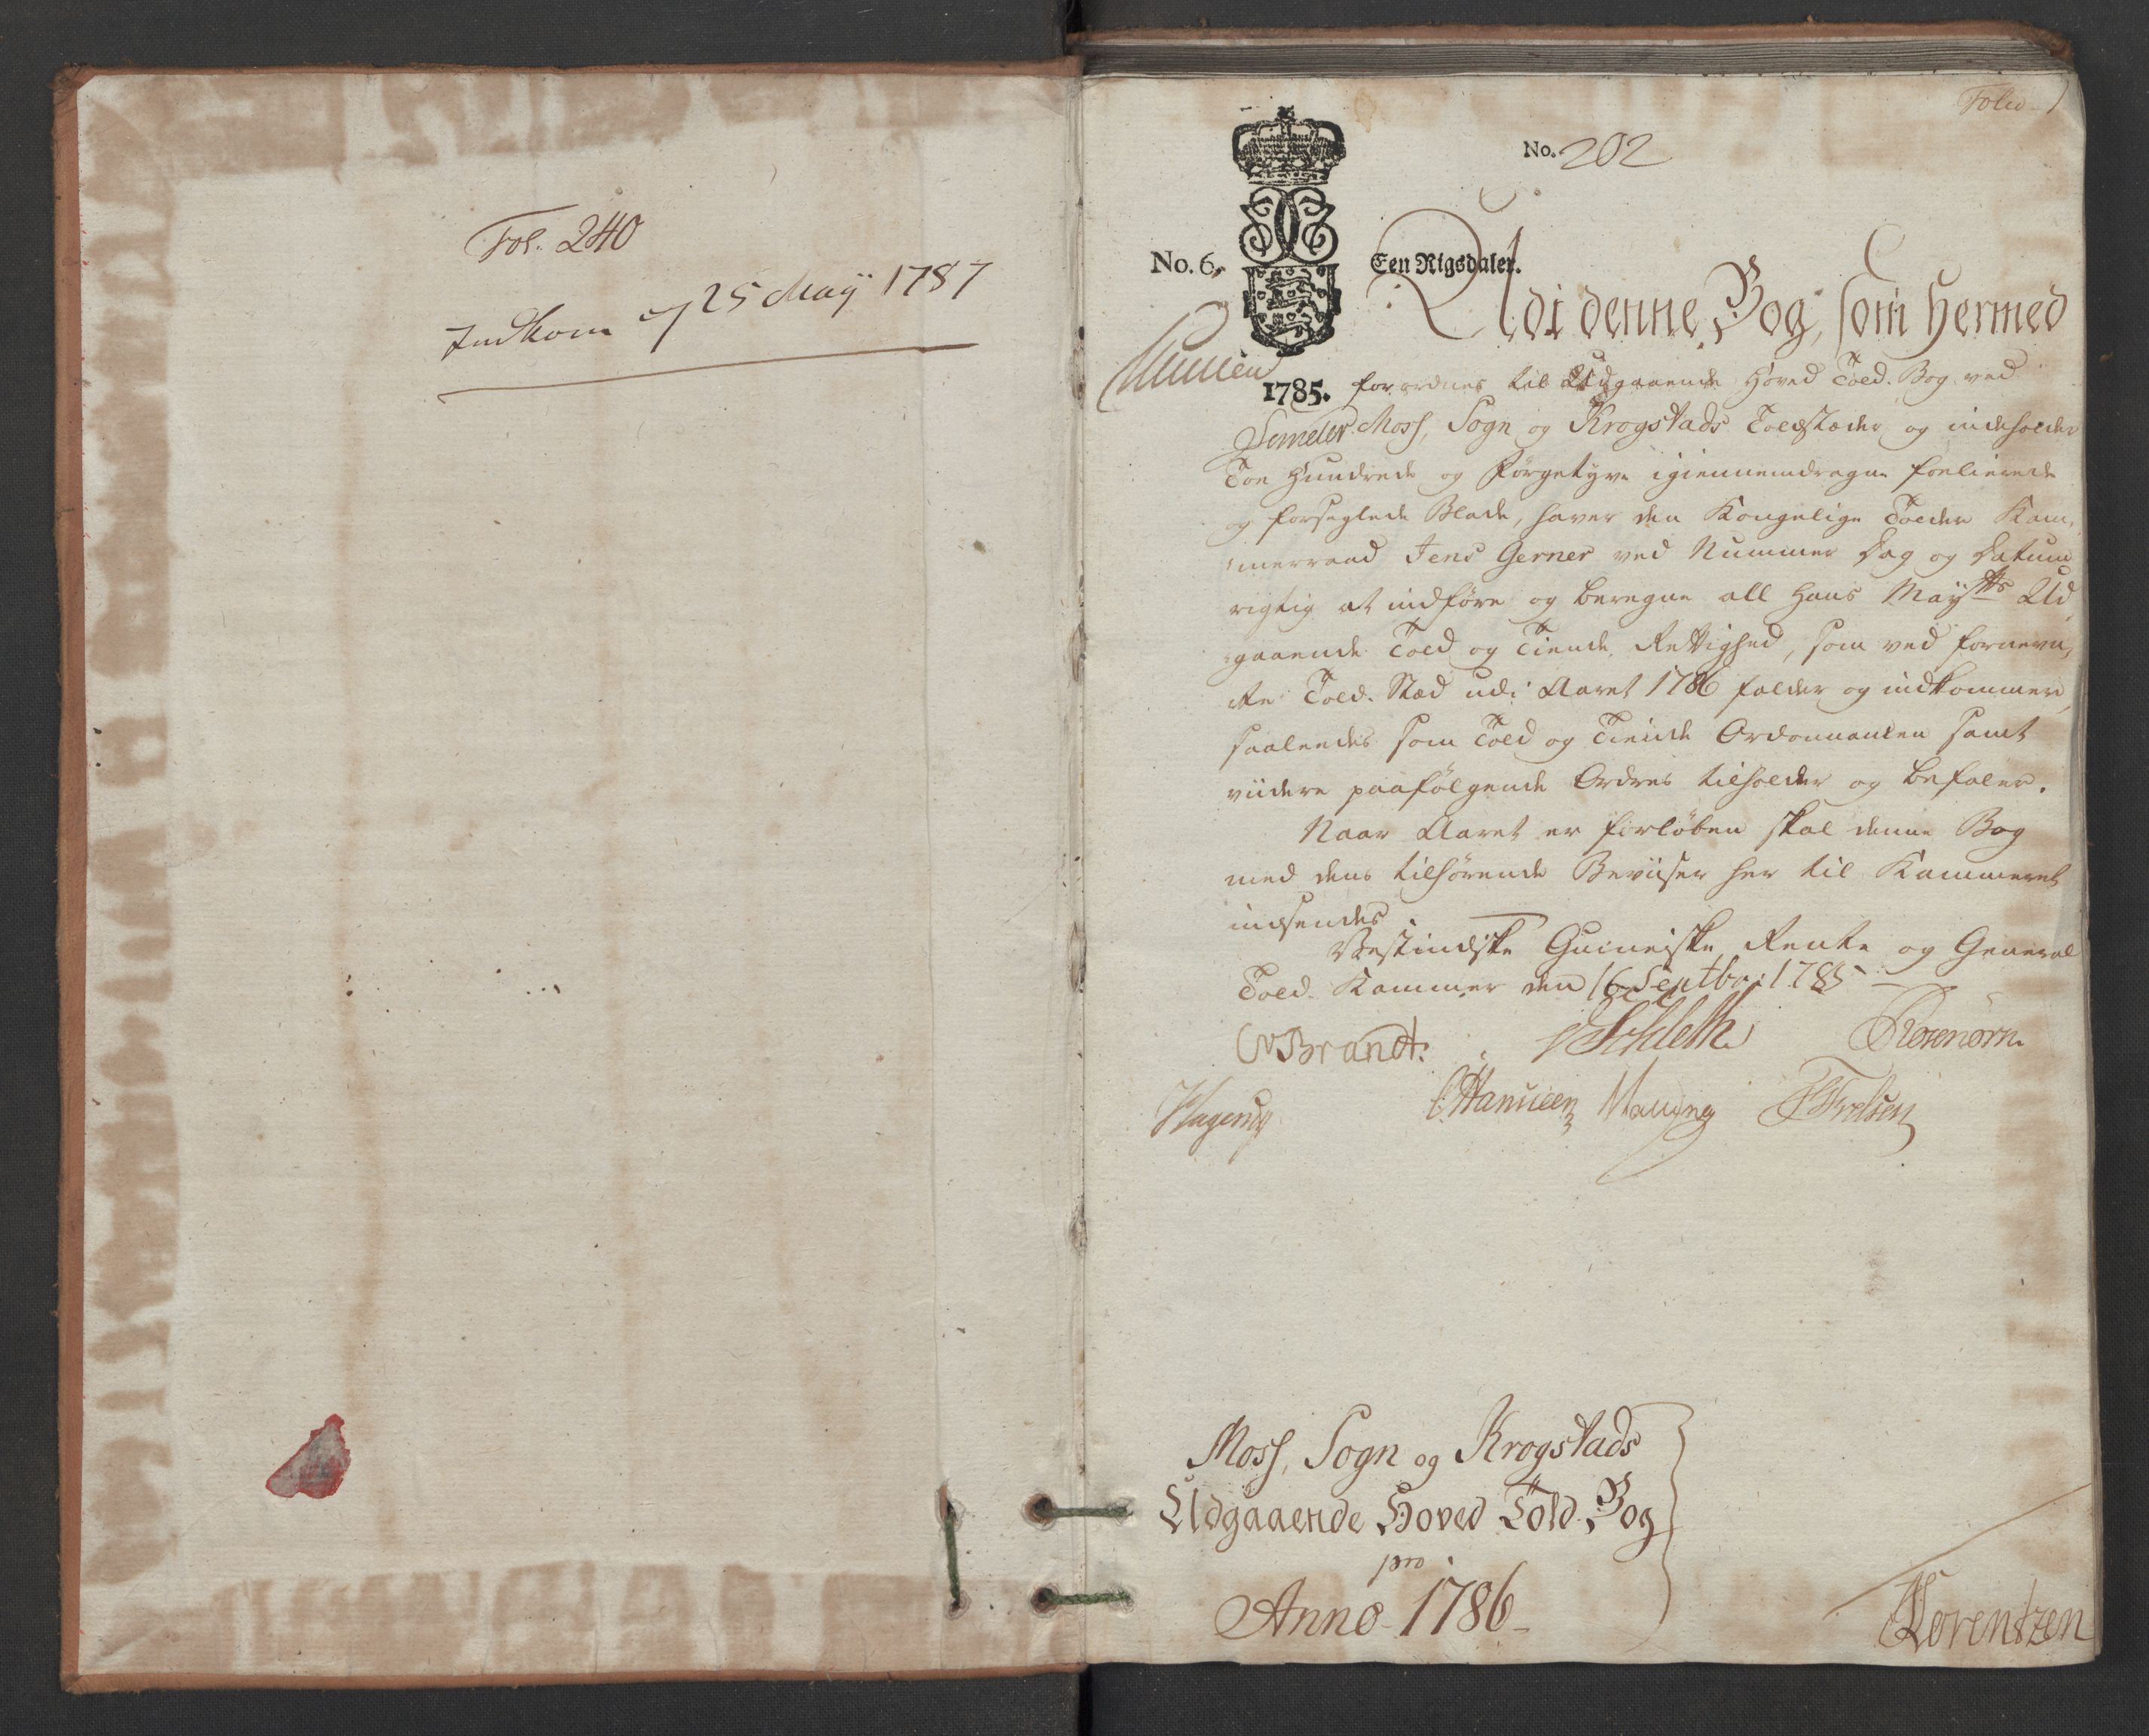 Fol. 240
Indkom d 25 Maij 1787
Folio 1
No. 202
No. 6.
Een Rigsdaler.
Udi denne Bog, som hermed
1785.
forordnes til Udgaaende Hoved Told-Bog ved
Moss, Sogn og Krogstads Toldstæder og indeholder
Toe Hundrede og Førgetyve igiennemdragne foelierede
og forseglede Blade, haver den Kongelige Tolder Kam,
merraad Jens Gerner ved Nummer Dag og Datum
rigtig at indføre og beregne all Hans Mayts Ud,
gaaende Told og Tiende Rettighed, som ved fornevn,
te Told-Stæd udi Aaret 1786 falder og indkommer,
saaleedes som Told og Tiende Ordonnancen samt
viidere paafølgende Ordres tilholder og befaler.
Naar Aaret er forløben skal denne Bog
med dens tilhørende Beviiser her til Kammeret
indsendes
Vestindiske Guineiske Rente og General
Told-Kammer den 16 Septbr: 1785
Brandt.
Schleth
Rosenørn
Hagerup
Hansen
Malling
Lorentzen
Moss, Sogn og Krogstads
Udgaaende Hoved Told-Bog
pro
Anno 1786